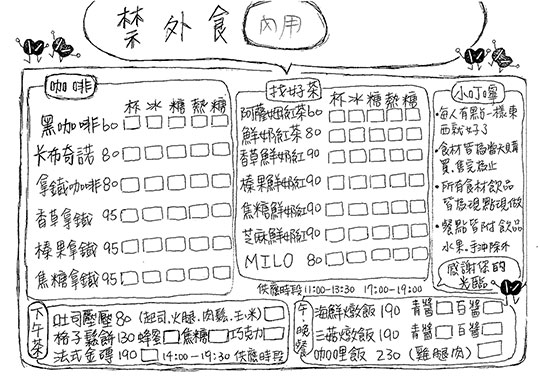 禁外食
內用
咖啡
杯 冰 糖 熱 糖
黑咖啡60
卡布奇諾 80
拿鐵咖啡80
香草拿鐵 95
榛果拿鐵 95
焦糖拿鐵 95
找好茶
杯 冰 糖 熱 糖
阿薩姆紅茶60
鮮奶紅茶 80
香草鮮奶紅90
榛果鮮奶紅90
焦糖鮮奶紅90
芝麻鮮奶紅90
MILO 80
小叮嚀
•每人有點一樣東
西就好了
•食材皆為當天購
買、售完為止
•所有食材飲品
皆為現點現做
•餐點皆附飲品
水果.手沖除外
感謝您的
光臨
下午茶
吐司壓壓80(起司.火腿.肉鬆.玉米)
格子鬆餅130 蜂蜜 焦糖 巧克力
法式金磚190 14:00-19:30 供應時段
供應時段11:00-13:30 17:00-19:00
午.晚餐
海鮮燉飯190 青醬 白醬
三菇燉飯190 青醬 白醬
咖哩飯 230 (雞腿肉)